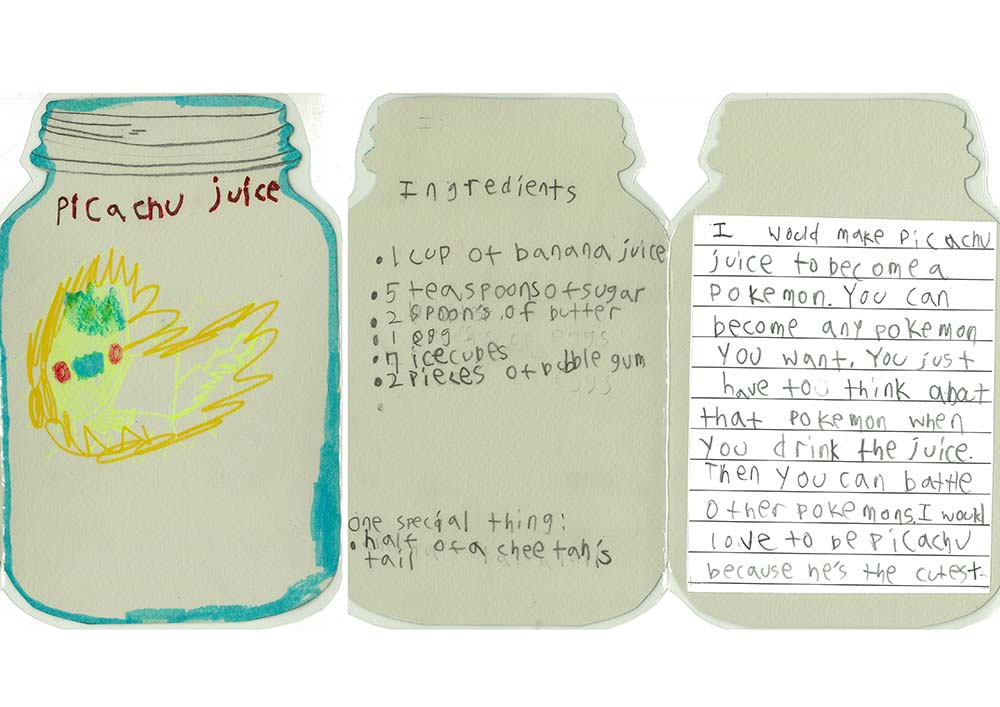 picachu juice
Ingredients
• 1 cup of banana juice
• 5 teaspoons of sugar
• 2 spoon's of butter
• 1 egg
• 7 icecubes
• 2 pieces of bubble gum
one special thing:
• half of a cheetah's
tail
I would make picachu
juice to become a
pokemon. You can
become any pokemon
you want. You just
have to think about
that pokemon when
you drink the juice.
Then you can battle
other pokemons. I would
love to be picachu
because he's the cutest.